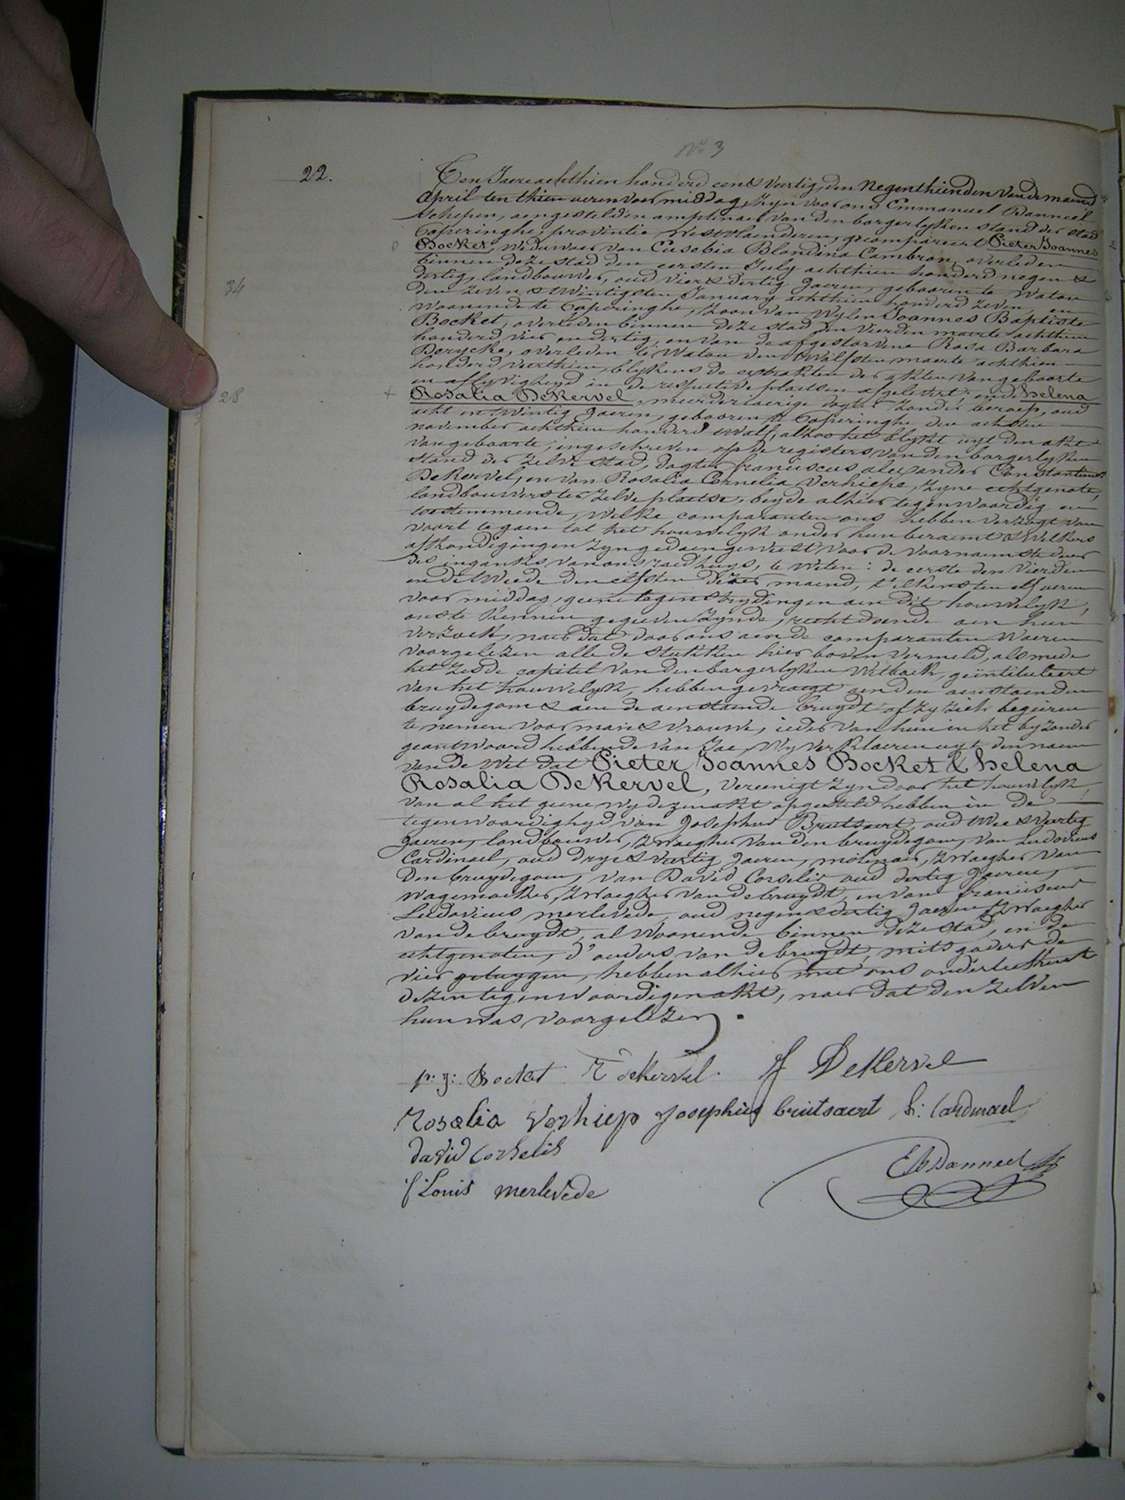 N° 3
22.
Ten Jaere achthien honderd een & veertig, den Negenthienden van de maend
April ten thien ueren voor middag, zyn voor ons Emmanuel Danneel
schepen, aengesteld en amptenaer van den borgerlyken stand der stad
Poperinghe, provintie Westvlaenderen, gecompareert Pieter Joannes
Bocket, weduwaer van Eusebia Blondina Cambron, overleden
binnen deze stad den eersten July achthien honderd negen &
34
dertig, landbouwer, oud vier & dertig Jaeren, geboren te Watou
den zeven & twintigsten January achthien honderd zeven en
woonende te Poperinghe, zoon van wylen Joannes Baptiste
Bocket, overleden binnen deze stad den vierden maerte achthien
honderd vier en dertig, en van de afgestorvene Rosa Barbara
, overleden te Watou den twalfsten maerte achthien
honderd veerthien, blykens de extrakten der akten van geboorte
en aflyvigheyd in de respective plaetsen afgelevert; ende Helena
28
+ Rosalia DeKervel, meerderjaerige dogter zonder beroep, oud
acht en twintig Jaeren, geboren te Poperinghe den achsten
november achthien honderd twalf, alhoo het blykt uyt den akt
van geboorte, ingeschreven op de registers van den borgerlyken
stand der zelve stad, dogter franciscus alexander Constantinus
DeKervel, en van Rosalia Cornelia Verhiepe, zyne echtgenote,
landbouwers ter zelve plaetse, beyde alhier tegenwoordig en
toestemmende, welke comparanten ons hebben verzogt van
voort te gaen tot het houwelyk onder hun beraemt & welkers
afkondigingen zyn gedaen geweest voor de voornaemste deur
des ingancks van ons raedhuys, te weten: de eerste den vierden
en de tweede den elfsten dezer maend, t'elkens ten elf ueren
voor middag, geene tegenstrydingen aen dit houwelyk,
ons te kennen gegeven zynde, recht doende aen hun
verzoek, naer dat door ons aen de comparanten waeren
voorgelezen alle de stukken hier boven vermeld, als mede
het zesde capitel van den borgerlyken Wetboek, geintituleert
van het houwelyk, hebben gevraegt aen den aenstaenden
bruydegom & aen de aenstaende bruydt of zy zich begeeren
te nemen voor man & vrouwe, ieder van hun in het byzonder
geantwoord hebbende van Jae, Wy verklaeren uyt den naem
van de Wet dat Pieter Joannes Bocket & Helena
Rosalia DeKervel, vereenigt zyn door het houwelyk,
van al het geene wy dezen akt opgesteld hebben in de
tegenwoordigheyd van Josephus Brutsaert, oud twee & veertig
Jaeren, landbouwer, zwaegher van den bruydegom, van Ludovicus
Cardinael, oud drye & veertig Jaeren, molenaer, zwaegher van
den bruydegom, van David Corselis oud dertig Jaeren,
wagemaeker, zwaegher van de bruydt, en van franciscus
Ludovicus merlevede oud negen & dertig Jaeren zwaegher
van de bruydt, al woonende binnen deze stad, en de
echtgenoten, d'ouders van de bruydt, mitsgaders de
vier getuygen, hebben alhier met ons onderteekent
dezen tegenwoordigen akt, naer dat den zelven
hun was voorgelezen.
p: j: Bocket H DeKervel. f DeKervel
Rosalia Verhiep Josephus brutsaert L: Cardinael
david Corselis
Em Danneel
f Louis merlevede